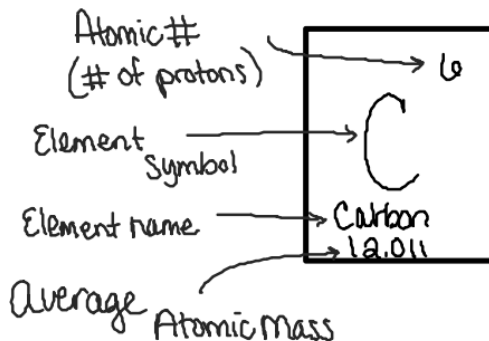 Atomic #
(# of protons)
6
Element
symbol
C
Element name
Carbon
12.011
average
Atomic Mass